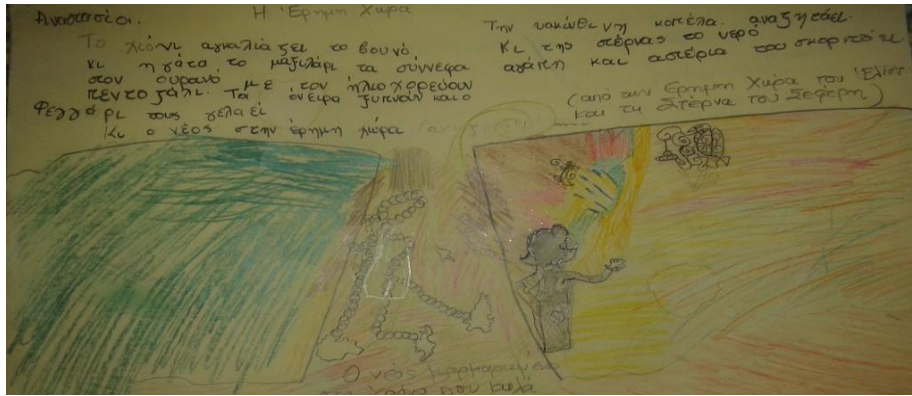 Αναστασία.
Η Έρημη Χώρα
Το χιόνι αγκαλιάζει το βουνό
κι η γάτα το μαξιλάρι τα σύννεφα
στον ουρανό
πεντοζάλι. Με τον ήλιο χορεύουν
Τα όνειρα ξυπνούν και ο
Φεγγάρι τους γελαεί
Κι ο νέος στην έρημη χώρα
Την υακώθινη κοπέλα. αναζητάει.
Κι της στέρνας το νερό
αγάπη και αστέρια του σκορπάει
(από την Έρημη Χώρα του Έλιοτ
και τη Στέρνα του Σεφέρη)
Ο νέος μαρμαρωμένο
που κυλά